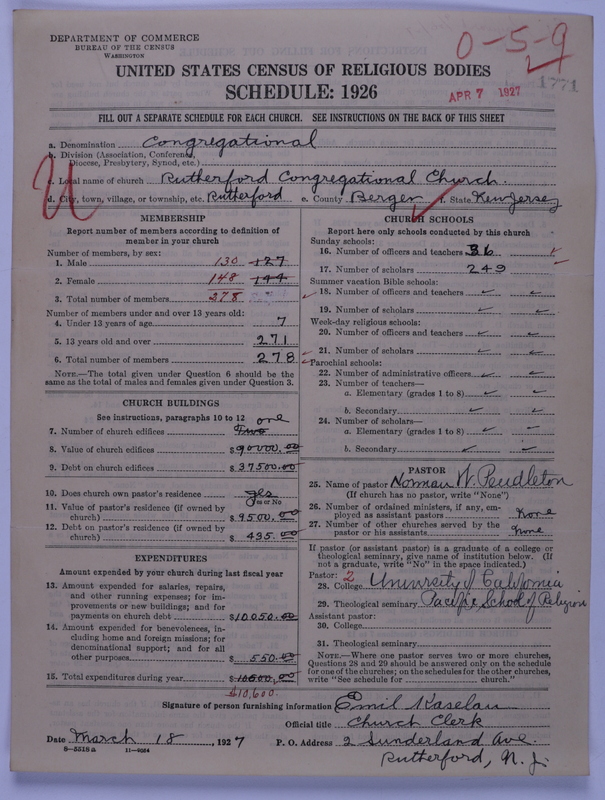 DEPARTMENT OF COMMERCE
BUREAU OF THE CENSUS
WASHINGTON
0-5-9
1771
APR 7 1927
UNITED STATES CENSUS OF RELIGIOUS BODIES
SCHEDULE: 1926
FILL OUT A SEPARATE SCHEDULE FOR EACH CHURCH. SEE INSTRUCTIONS ON THE BACK OF THIS SHEET
a. Denomination Congregational
b. Division (Association, Conference, Diocese, Presbytery, Synod, etc.)
c. Local name of church Rutherford Congregational Church.
d. City, town, village, or township, etc. Rutherford e. County Bergen f. State New Jersey
U
MEMBERSHIP
Report number of members according to definition of
member in your church
Number of members, by sex:
1. Male 130 127
2. Female 148 144
3. Total number of members 278
Number of members under and over 13 years old:
4. Under 13 years of age 7
5. 13 years old and over 271
6. Total number of members 278
NOTE.—The total given under Question 6 should be the
same as the total of males and females given under Question 3.
CHURCH BUILDINGS
See instructions, paragraphs 10 to 12
one
7. Number of church edifices Two
8. Value of church edifices $90000.00
9. Debt on church edifices $37500.00
10. Does church own pastor's residence yes
Yes or No
11. Value of pastor's residence (if owned by
church) $9500.00
12. Debt on pastor's residence (if owned by
church) $435.00
EXPENDITURES
Amount expended by your church during last fiscal year
13. Amount expended for salaries, repairs,
and other running expenses; for im-
provements or new buildings; and for
payments on church debt $10050.00
14. Amount expended for benevolences, in-
cluding home and foreign missions; for
denominational support; and for all
other purposes $550.00
15. Total expenditures during year $10500.00
$10,600.
CHURCH SCHOOLS
Report here only schools conducted by this church
Sunday schools:
16. Number of officers and teachers 36
17. Number of scholars 249
Summer vacation Bible schools:
18. Number of officers and teachers
19. Number of scholars
Week-day religious schools:
20. Number of officers and teachers
21. Number of scholars
Parochial schools:
22. Number of administrative officers
23. Number of teachers—
a. Elementary (grades 1 to 8)
b. Secondary
24. Number of scholars—
a. Elementary (grades 1 to 8)
b. Secondary
PASTOR
25. Name of pastor Norman W. Pendleton
(If church has no pastor, write "None")
26. Number of ordained ministers, if any, em-
ployed as assistant pastors None
27. Number of other churches served by the
pastor or his assistants None
If pastor (or assistant pastor) is a graduate of a college or
theological seminary, give name of institution below. (If
not a graduate, write "No" in the space indicated.)
Pastor: 2
28. College University of California
29. Theological seminary Pacific School of Religion
Assistant pastor:
30. College
31. Theological seminary
NOTE.—Where one pastor serves two or more churches,
Questions 28 and 29 should be answered only on the schedule
for one of the churches; on the schedules for the other churches,
write "See schedule for church."
Signature of person furnishing information Emil Kaselau
Official title Church Clerk
Date March 18, 1927 P. O. Address 2 Sunderland Ave.
8—5518a 11—9084
Rutherford, N. J.